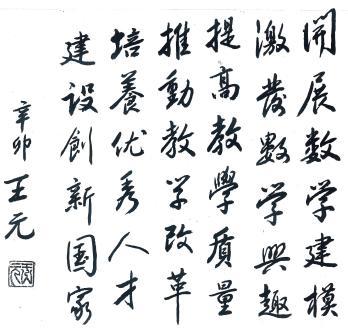 開展数学建模
激發數学興趣
提高教學质量
推動教学改革
培養优秀人才
建设創新国家
辛卯
王元